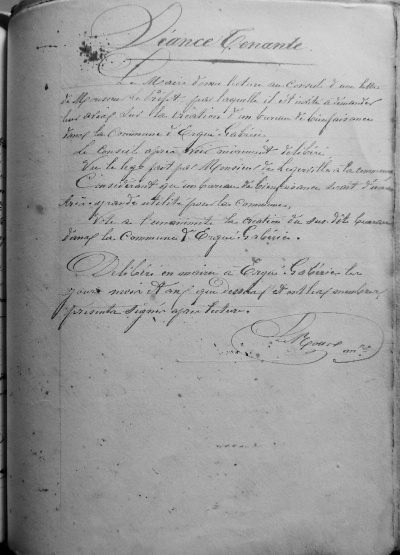 Séance Tenante
Le Maire donne lecture au Conseil d'une lettre
de Monsieur le Préfet par laquelle il est invité à demander
leur avis sur la création d'un bureau de bienfaisance
dans la Commune d'Ergué-Gabéric.
Le Conseil après avoir mûrement délibéré
Vu le legs fait par Monsieur de à la commune
Considérant qu'un bureau de bienfaisance serait d'une
très grande utilité pour la commune,
Vote à l'unanimité la création du susdit bureau
dans la Commune d'Ergué-Gabéric.
Délibéré en mairie à Ergué-Gabéric les
jour mois et an que dessus et ont les membres
présents signé après lecture.